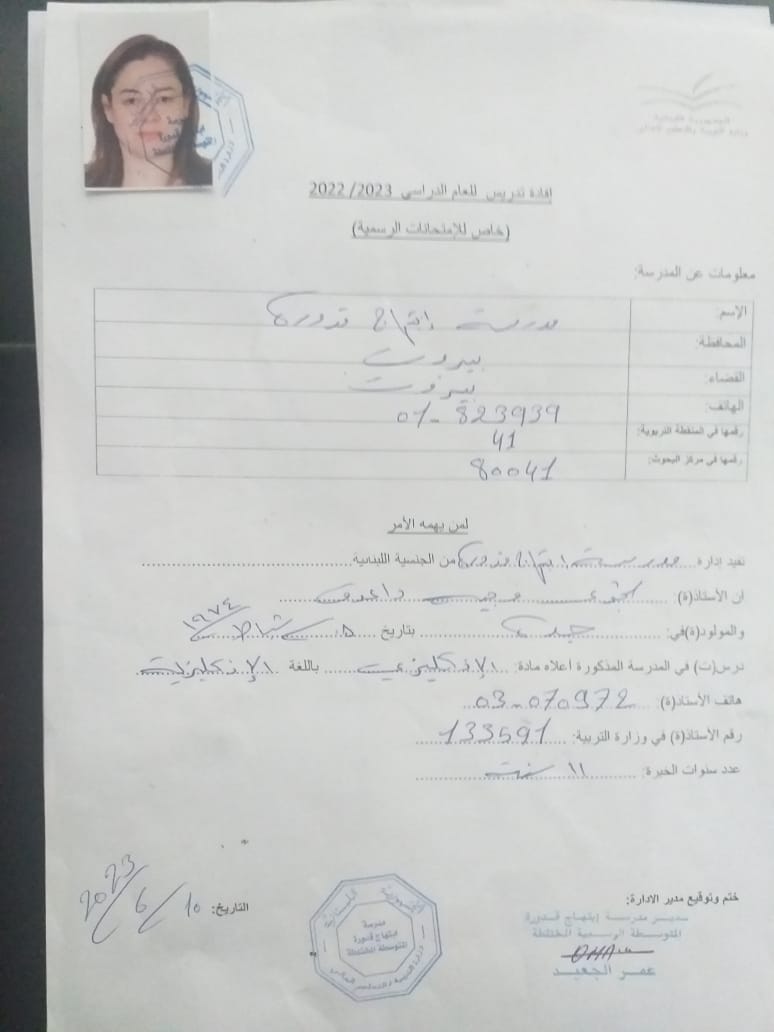 الجمهورية اللبنانية
وزارة التربية والتعليم العالي
إفادة تدريس للعام الدراسي 2022/2023
(خاص للإمتحانات الرسمية)
معلومات عن المدرسة:
الإسم: مدرسة إبتهاج قدورة
المحافظة: بيروت
القضاء: بيروت
الهاتف: 01-823939
رقمها في المنطقة التربوية: 41
رقمها في مركز البحوث: 80041
لمن يهمه الأمر
تفيد إدارة مدرسة إبتهاج قدورة من الجنسية اللبنانية
ان الأستاذ(ة):
والمولود(ة) في: بتاريخ ١٩٧٤
درس(ت) في المدرسة المذكورة أعلاه مادة: الإنكليزية باللغة الإنكليزية
هاتف الأستاذ(ة): 03-070972
رقم الأستاذ(ة) في وزارة التربية: 133591
عدد سنوات الخبرة: ١١ سنة
ختم وتوقيع مدير الادارة:
التاريخ: 10/6/2023
مدير مدرسة إبتهاج قدورة
المتوسطة الرسمية المختلطة
عمر الجعيد
الجمهورية اللبنانية
مدرسة
ابتهاج قدورة
المتوسطة المختلطة
وزارة التربية والتعليم العالي